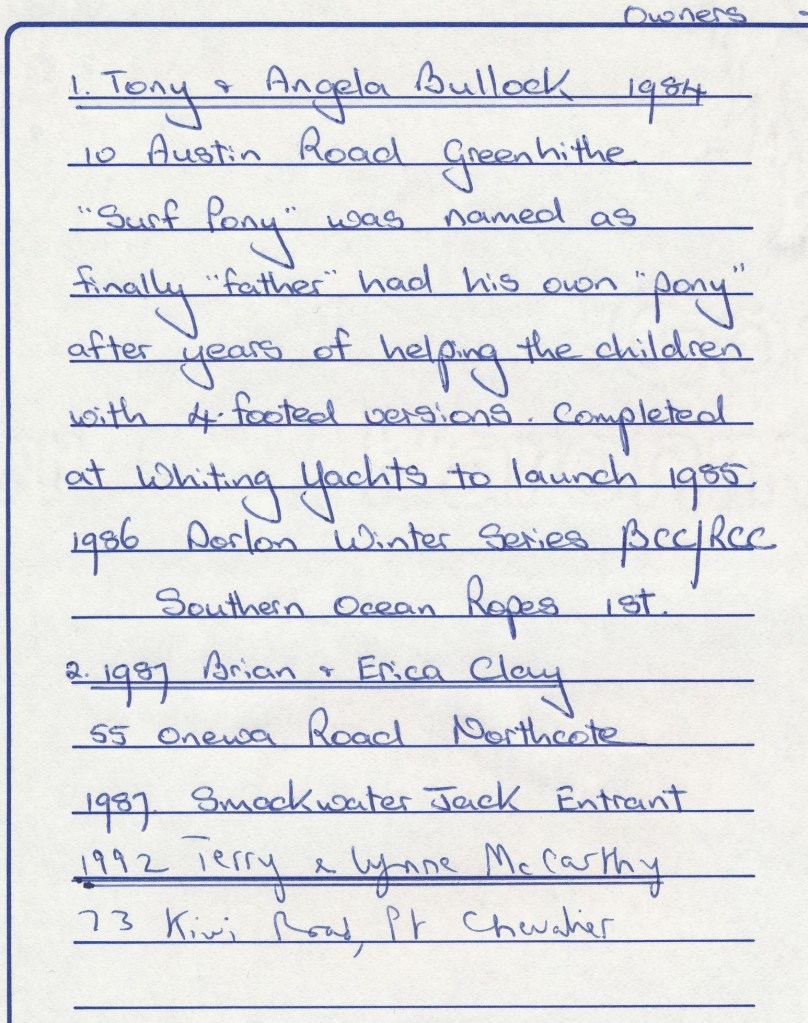 Owners
1. Tony & Angela Bullock 1984
10 Austin Road Greenhithe
"Surf Pony" was named as
finally "father" had his own "pony"
after years of helping the children
with 4-footed versions. Completed
at Whiting Yachts to launch 1985.
1986 Dorlon Winter Series BCC/RCC
Southern Ocean Ropes 1st.
2. 1987 Brian & Erica Clay
55 Onewa Road Northcote
1987. Smackwater Jack Entrant
1992 Terry & Lynne McCarthy
73 Kiwi Road, Pt Chevalier